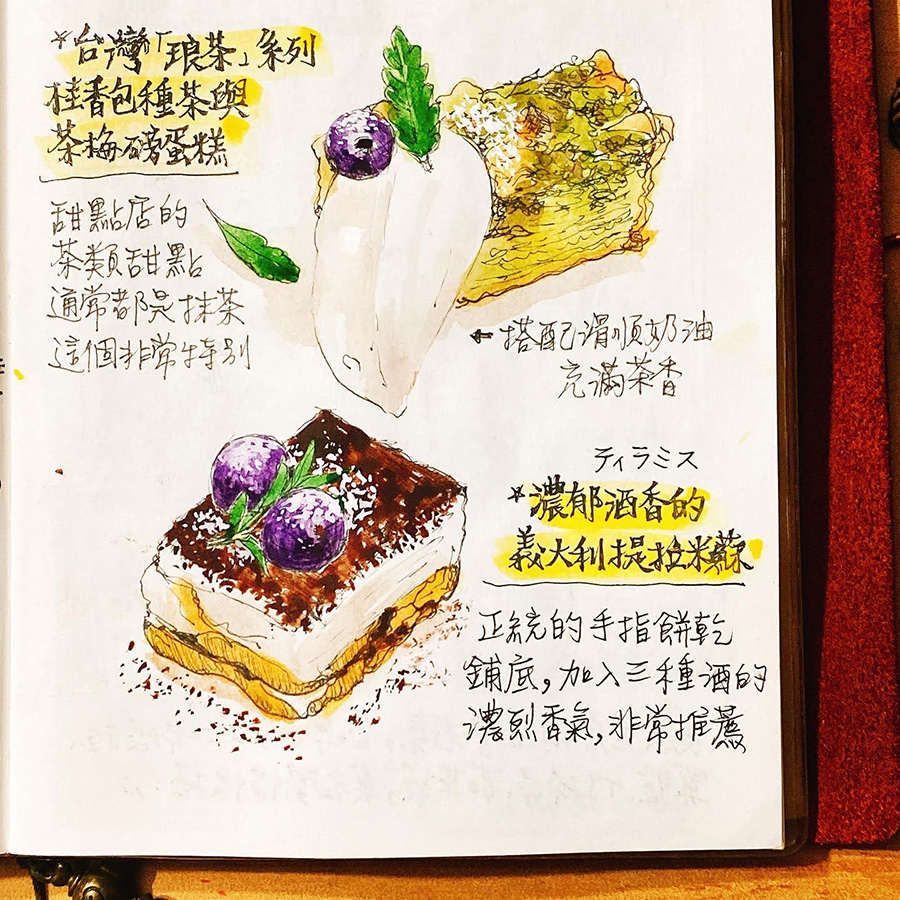 *台灣「琅茶」系列
桂香包種茶與
茶梅磅蛋糕
甜點店的
茶類甜點
通常都是抹茶
這個非常特別
←搭配滑順奶油
充滿茶香
ティラミス
*濃郁酒香的
義大利提拉米蘇
正統的手指餅乾
鋪底,加入三種酒的
濃烈香氣,非常推薦